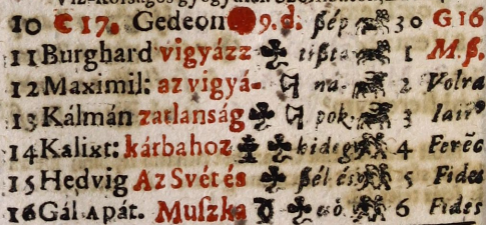 10 C 17. Gedeon 9. d. ßép 30 G 16
11 Burghard vigyázz tißta 1 M. ß.
12 Maximil: az vigyá- na. 2 Volra
13 Kálmán zatlanság pok. 3 Iair9
14 Kalixt: kárbahoz hideg 4 Ferēc
15 Hedvig Az Svét és ßél és 5 Fides
16 Gál Apát. Muſzka eső. 6 Fides